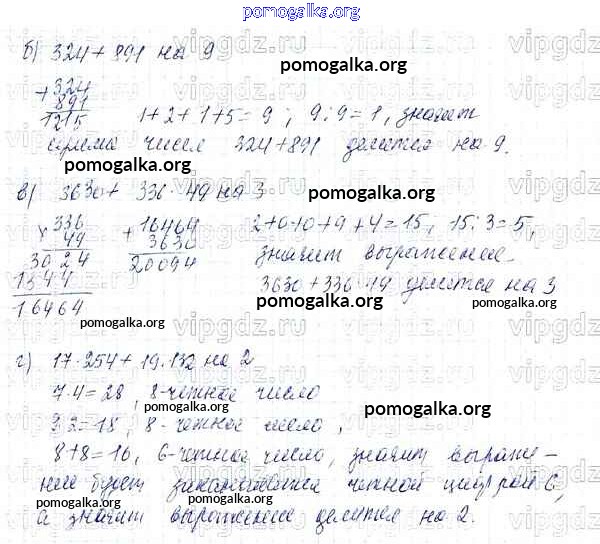 pomogalka.org
б) 324 + 891 на 9
+ 324
891
1215
pomogalka.org
1+2+1+5=9; 9:9=1, значит
сумма чисел 324+891 делится на 9.
pomogalka.org
pomogalka.org
в) 3630 + 336 · 49 на 3
× 336
49
3024
1344
16464
+ 16464
3630
20094
2+0+0+9+4=15; 15:3=5,
значит выражение
3630+336·49 делится на 3
pomogalka.org
pomogalka.org
г) 17·254 + 19·132 на 2
7·4=28, 8-четное число
pomogalka.org
9·2=18, 8-четное число,
pomogalka.org
8+8=16, 6-четное число, значит выраже-
ние будет заканчиваться четной цифрой 6,
pomogalka.org
pomogalka.org
а значит выражение делится на 2.
vipgdz.ru